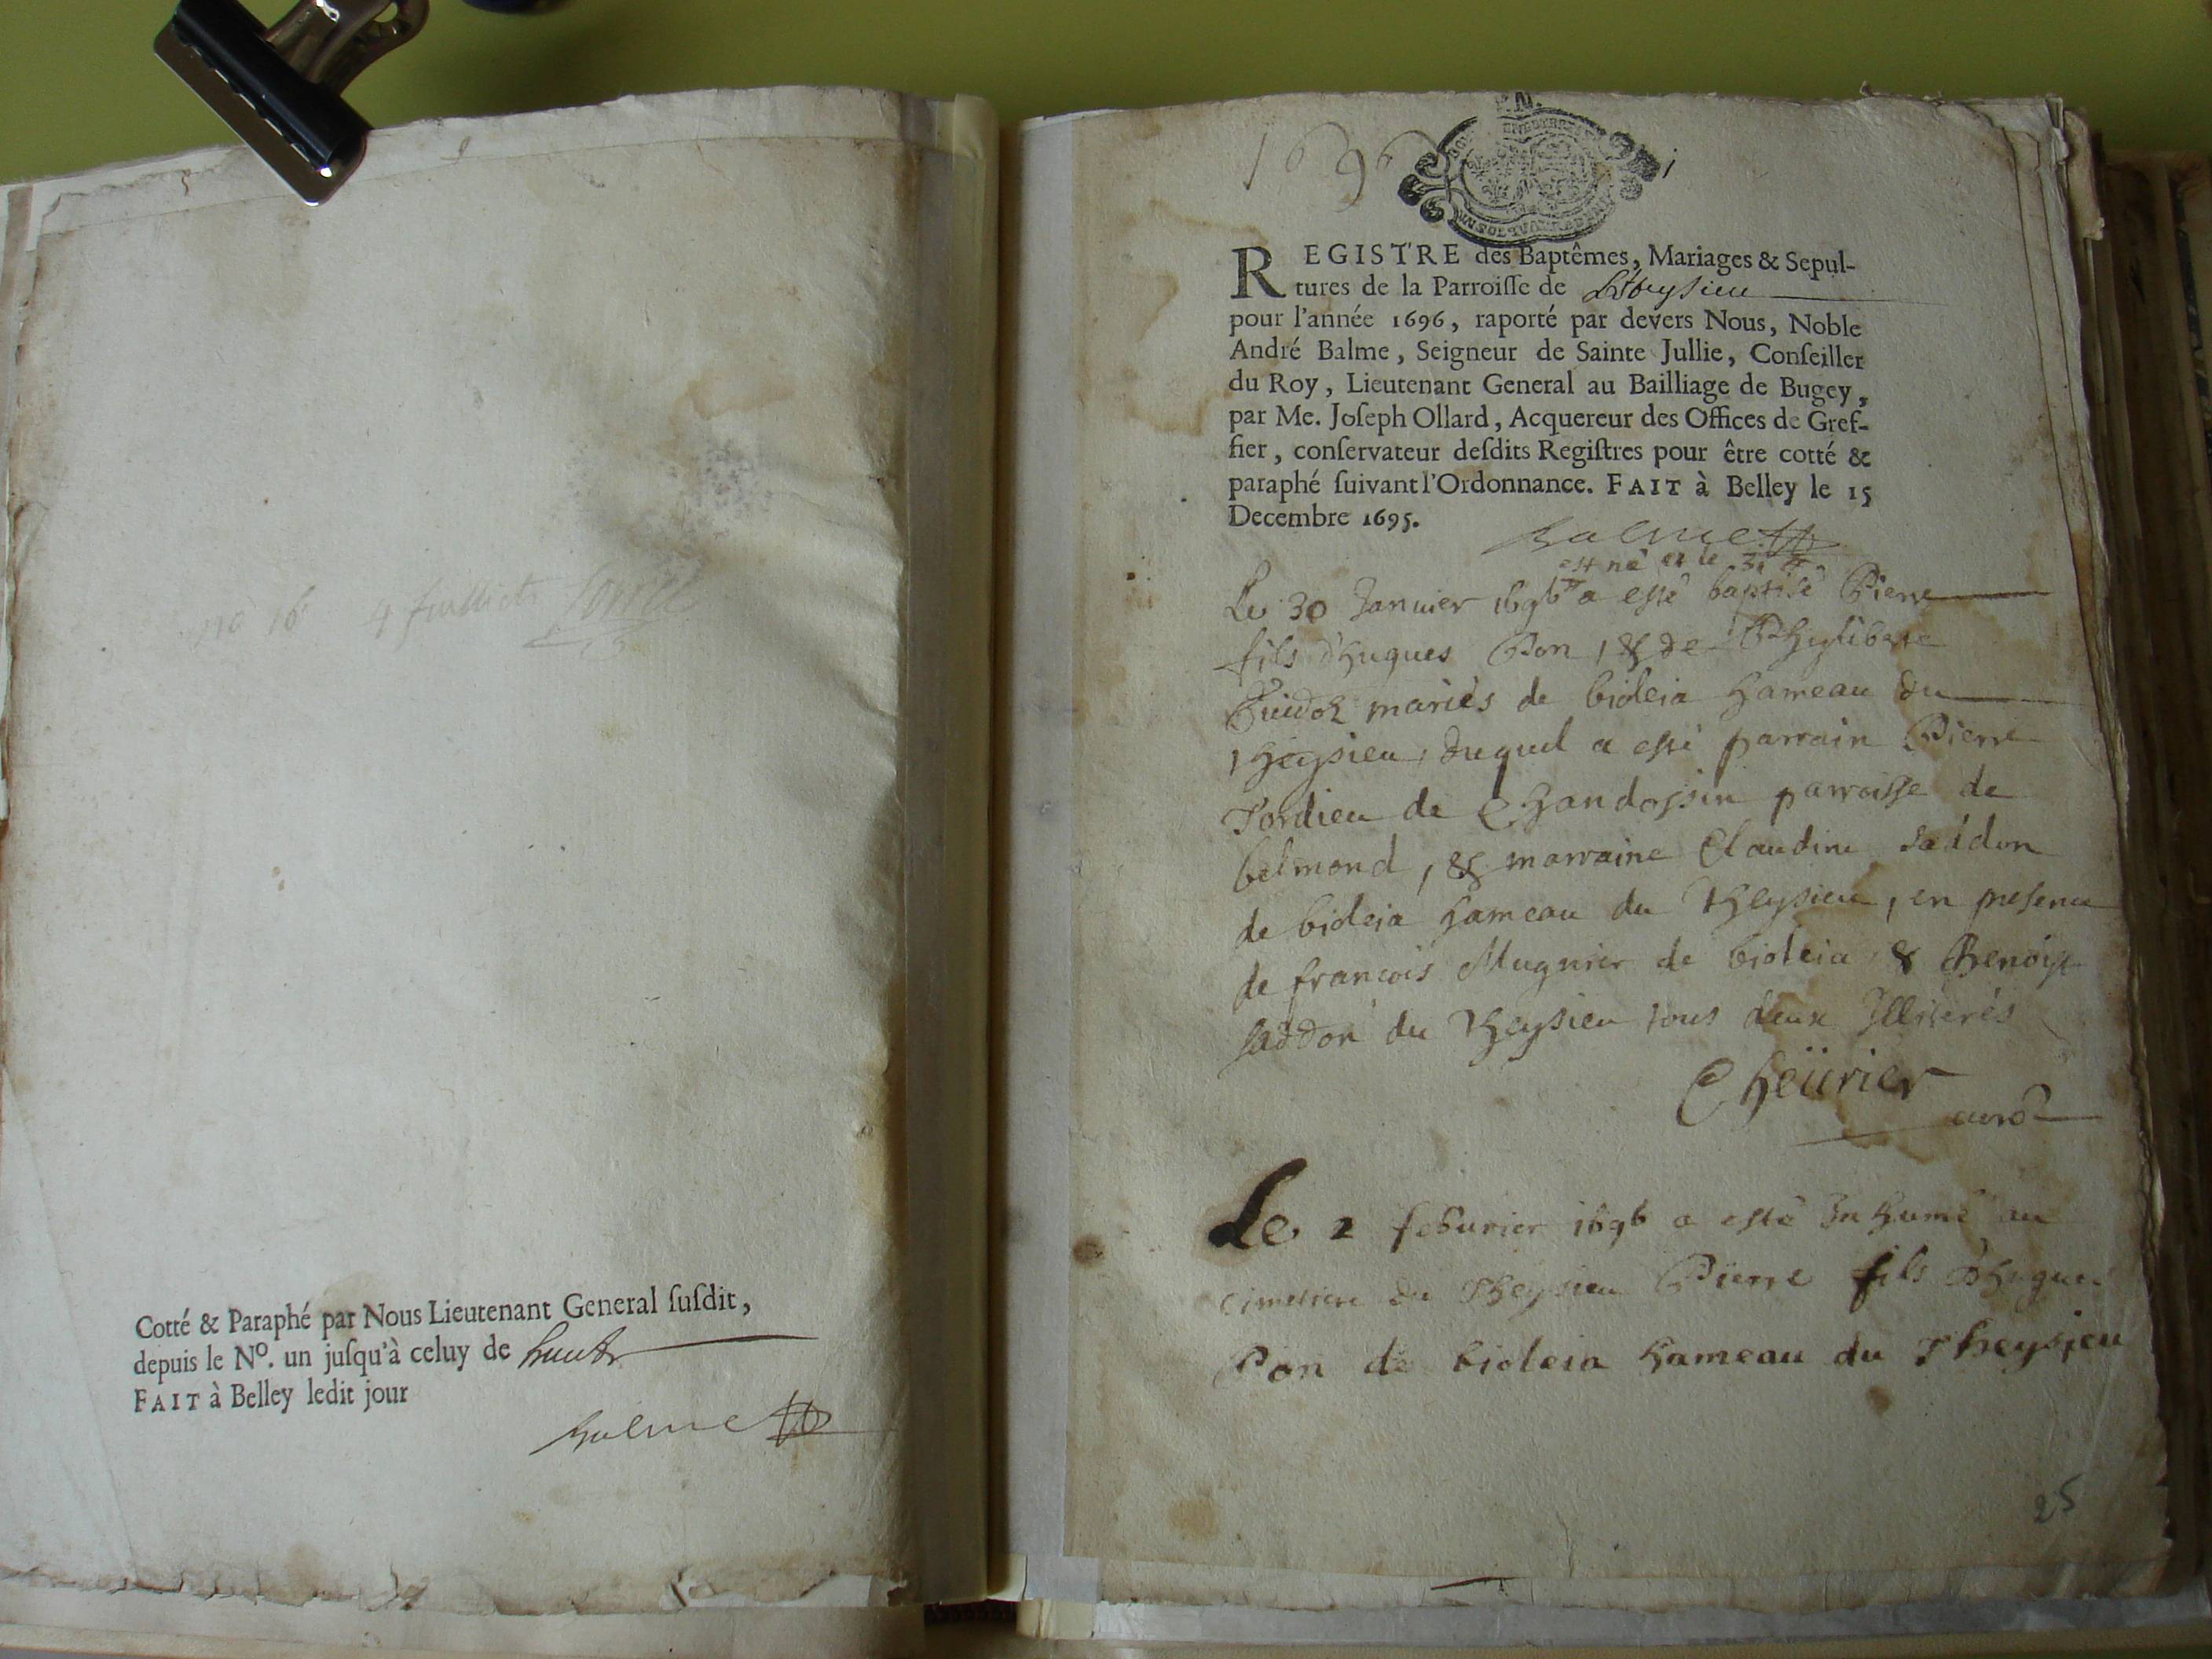 no 16 4 feulliets
Cotté & Paraphé par Nous Lieutenant General ſuſdit,
depuis le Nº. un juſqu'à celuy de huict
FAIT à Belley ledit jour
Balme
1696
i
REGISTRE des Baptêmes, Mariages & Sepul-
tures de la Parroiſſe de Theysieu
pour l'année 1696, raporté par devers Nous, Noble
André Balme, Seigneur de Sainte Jullie, Conſeiller
du Roy, Lieutenant General au Bailliage de Bugey,
par Me. Joſeph Ollard, Acquereur des Offices de Gref-
fier, conſervateur deſdits Regiſtres pour être cotté &
paraphé ſuivant l'Ordonnance. FAIT à Belley le 15
Decembre 1695.
Balme
est né et le 31
Le 30 Januier 1696 a esté baptisé Pierre
fils d'hugues Pon, & de Phylibere
mariés de bioleia hameau du
Theysieu, duquel a esté parrain Pierre
Tordieu de Chandossin parroisse de
belmond, & marraine Claudine Saddon
de bioleia hameau du Theysieu, en presence
de francois Mugnier de bioleia & Benoist
saddon du Theysieu tous deux Illiterés
Cheürier
curé
Le 2 feburier 1696 a esté Inhumé au
cimetiere du Theysieu Pierre fils d'hugues
Pon de bioleia hameau du Theysieu
25